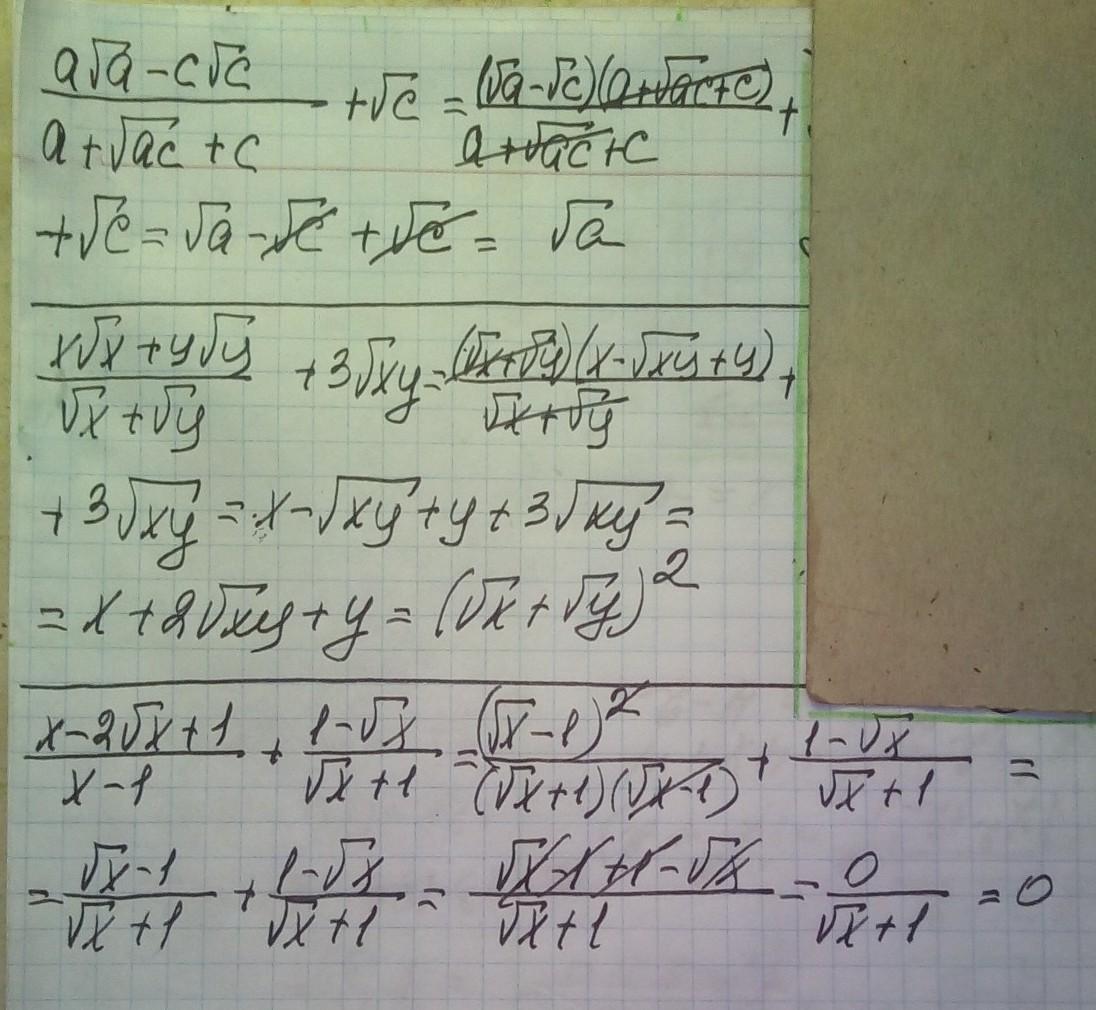 (a√a - c√c)/(a + √ac + c) + √c = (√a - √c)(a + √ac + c)/(a + √ac + c) +
+ √c = √a - √c + √c = √a
(x√x + y√y)/(√x + √y) + 3√xy = (√x + √y)(x - √xy + y)/(√x + √y) +
+ 3√xy = x - √xy + y + 3√xy =
= x + 2√xy + y = (√x + √y)²
(x - 2√x + 1)/(x - 1) + (1 - √x)/(√x + 1) = (√x - 1)²/((√x + 1)(√x - 1)) + (1 - √x)/(√x + 1) =
= (√x - 1)/(√x + 1) + (1 - √x)/(√x + 1) = (√x - 1 + 1 - √x)/(√x + 1) = 0/(√x + 1) = 0